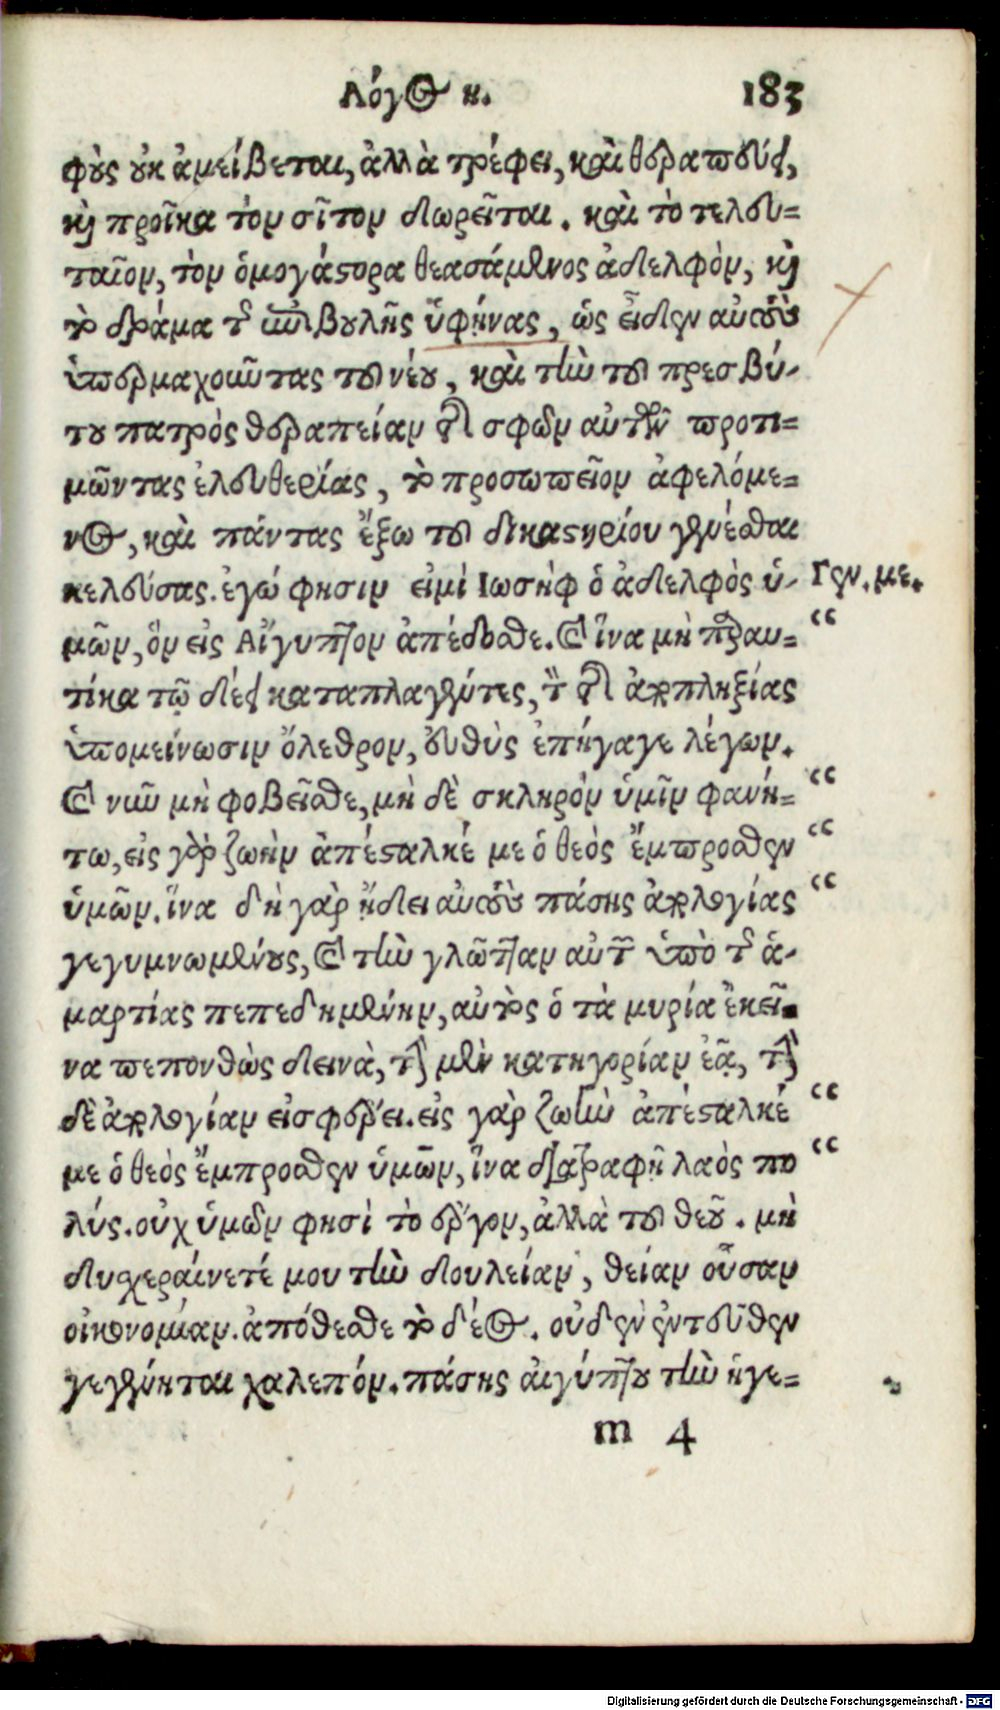 Λόγος κ. 183
φοὺς οὐκ ἀμείβεται, ἀλλὰ τρέφει, καὶ θεραπεύει,
καὶ προῖκα τὸν σῖτον δωρεῖται. καὶ τὸ τελευ-
ταῖον, τὸν ὁμογάστορα θεασάμενος ἀδελφὸν, καὶ
τὸ δρᾶμα τῆς ἐπιβουλῆς ὑφήνας, ὡς εἶδεν αὐτοὺς
ὑπερμαχοῦντας τοῦ νέου, καὶ τὴν τοῦ πρεσβύ-
του πατρὸς θεραπείαν τῆς σφῶν αὐτῶν προτι-
μῶντας ἐλευθερίας, τὸ προσωπεῖον ἀφελόμε-
νος, καὶ πάντας ἔξω τοῦ δικαστηρίου γενέσθαι
κελεύσας. ἐγώ φησιν εἰμὶ Ιωσὴφ ὁ ἀδελφὸς ὑ- Γεν. με.
μῶν, ὃν εἰς Αἴγυπτον ἀπέδοσθε. καὶ ἵνα μὴ παραυ- “
τίκα τῷ δέει καταπλαγέντες, τὸν ἐκ τῆς ἐκπληξίας
ὑπομείνωσιν ὄλεθρον, εὐθὺς ἐπήγαγε λέγων.
καὶ νῦν μὴ φοβεῖσθε, μὴ δὲ σκληρὸν ὑμῖν φανή- “
τω, εἰς γὰρ ζωὴν ἀπέσταλκέ με ὁ θεὸς ἔμπροσθεν “
ὑμῶν. ἵνα δὴ γὰρ ᾔδει αὐτοὺς πάσης ἀπολογίας “
γεγυμνωμένους, καὶ τὴν γλῶτταν αὐτῶν ὑπὸ τῆς ἁ-
μαρτίας πεπεδημένην, αὐτὸς ὁ τὰ μυρία ἐκεῖ-
να πεπονθὼς δεινὰ, τὴν μὲν κατηγορίαν ἐᾷ, τὴν
δὲ ἀπολογίαν εἰσφέρει. εἰς γὰρ ζωὴν ἀπέσταλκέ “
με ὁ θεὸς ἔμπροσθεν ὑμῶν, ἵνα διατραφῇ λαὸς πο “
λύς. οὐχ ὑμῶν φησὶ τὸ ἔργον, ἀλλὰ τοῦ θεοῦ. μὴ
δυσχεραίνετέ μου τὴν δουλείαν, θείαν οὖσαν
οἰκονομίαν. ἀπόθεσθε τὸ δέος. οὐδὲν ἐντεῦθεν
γεγένηται χαλεπόν. πάσης αἰγύπτου τὴν ἡγε-
m 4
Digitalisierung gefördert durch die Deutsche Forschungsgemeinschaft - DFG